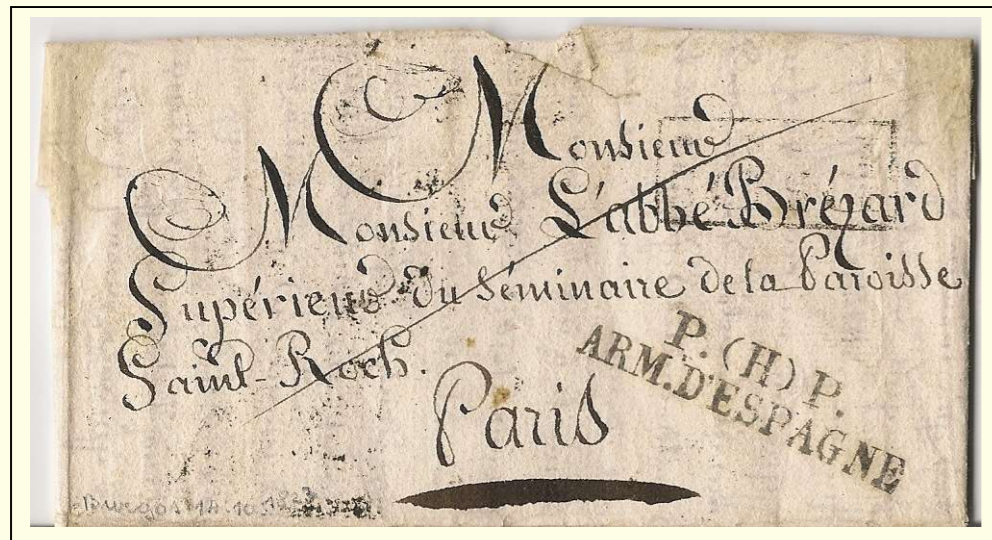 Monsieur
Monsieur L'abbé Brézard
Supérieur du Séminaire de la Paroisse
Saint-Roch.
Paris
P. (H) P.
ARM. D'ESPAGNE